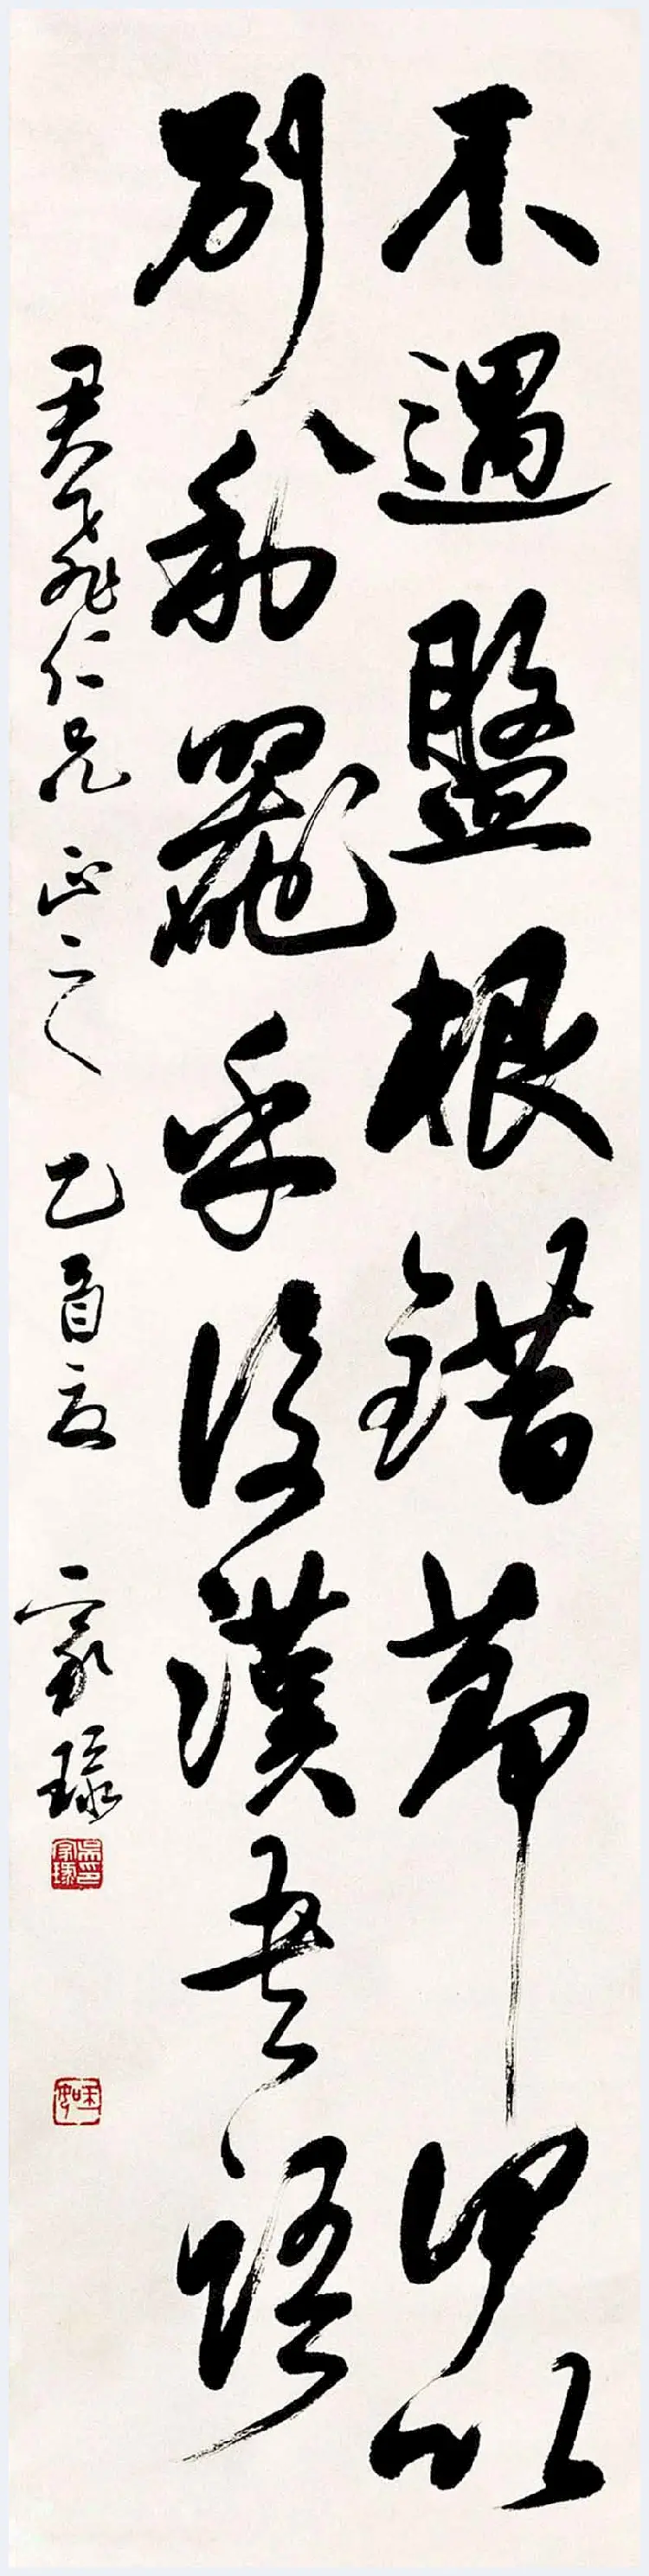 不遇盤根錯節何以
別利器乎後漢書語
君飛仁兄正之 乙酉夏 家琭
吳家琭印